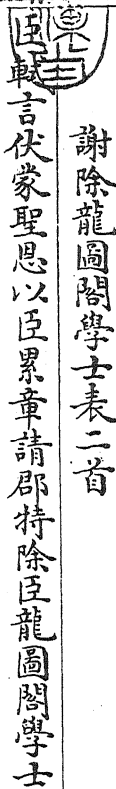 謝除龍圖閣學士表二首
臣軾言伏蒙聖恩以臣累章請郡特除臣龍圖閣學士